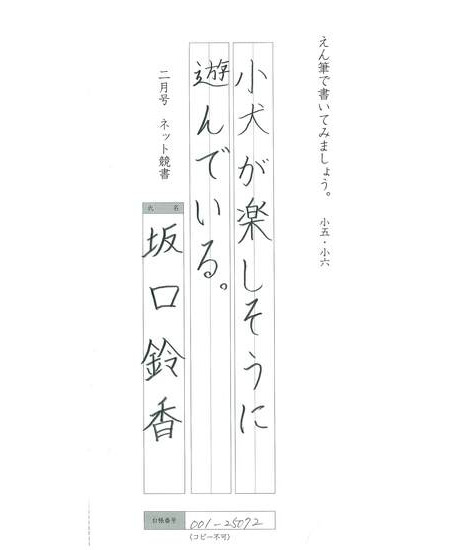 えん筆で書いてみましょう。 小五・小六
小犬が楽しそうに
遊んでいる。
二月号 ネット競書
氏 名
坂口鈴香
台帳番号 001-25072
(コピー不可)